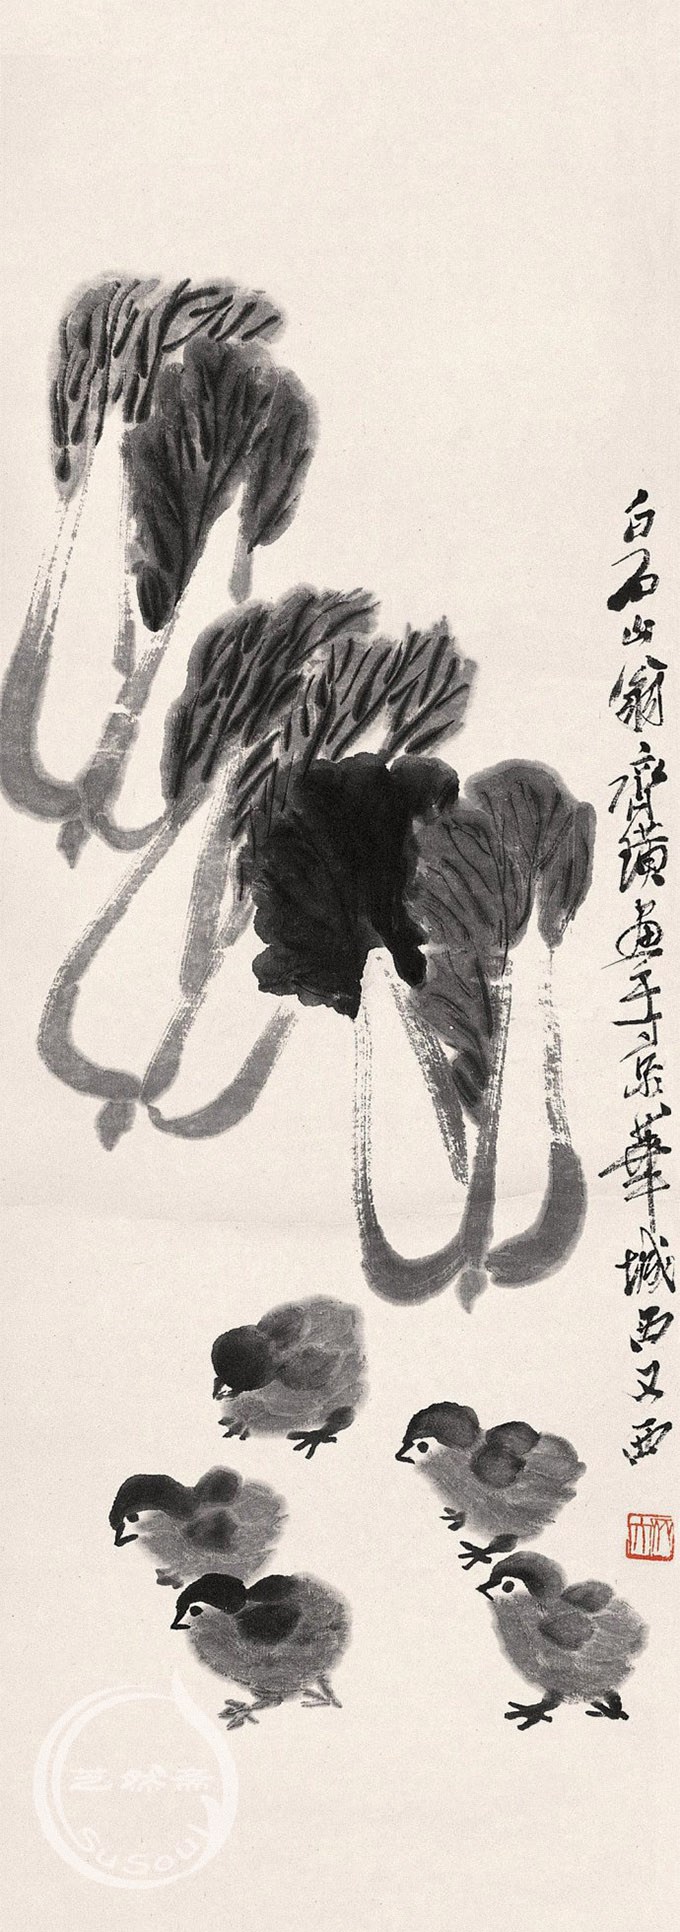 白石山翁齊璜画于京華城西又西
木人
艺然斋
SuSoul